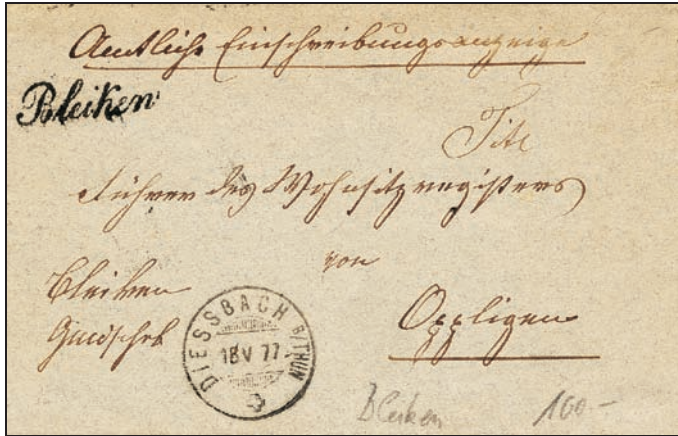 Amtliche Einschreibungsanzeige
Bleiken
Tit.
Führer des Wohnsitzregisters
von
Oppligen
Bleiken
Gmdschrb
DIESSBACH B/THUN
18 V 77
Bleiken 100–